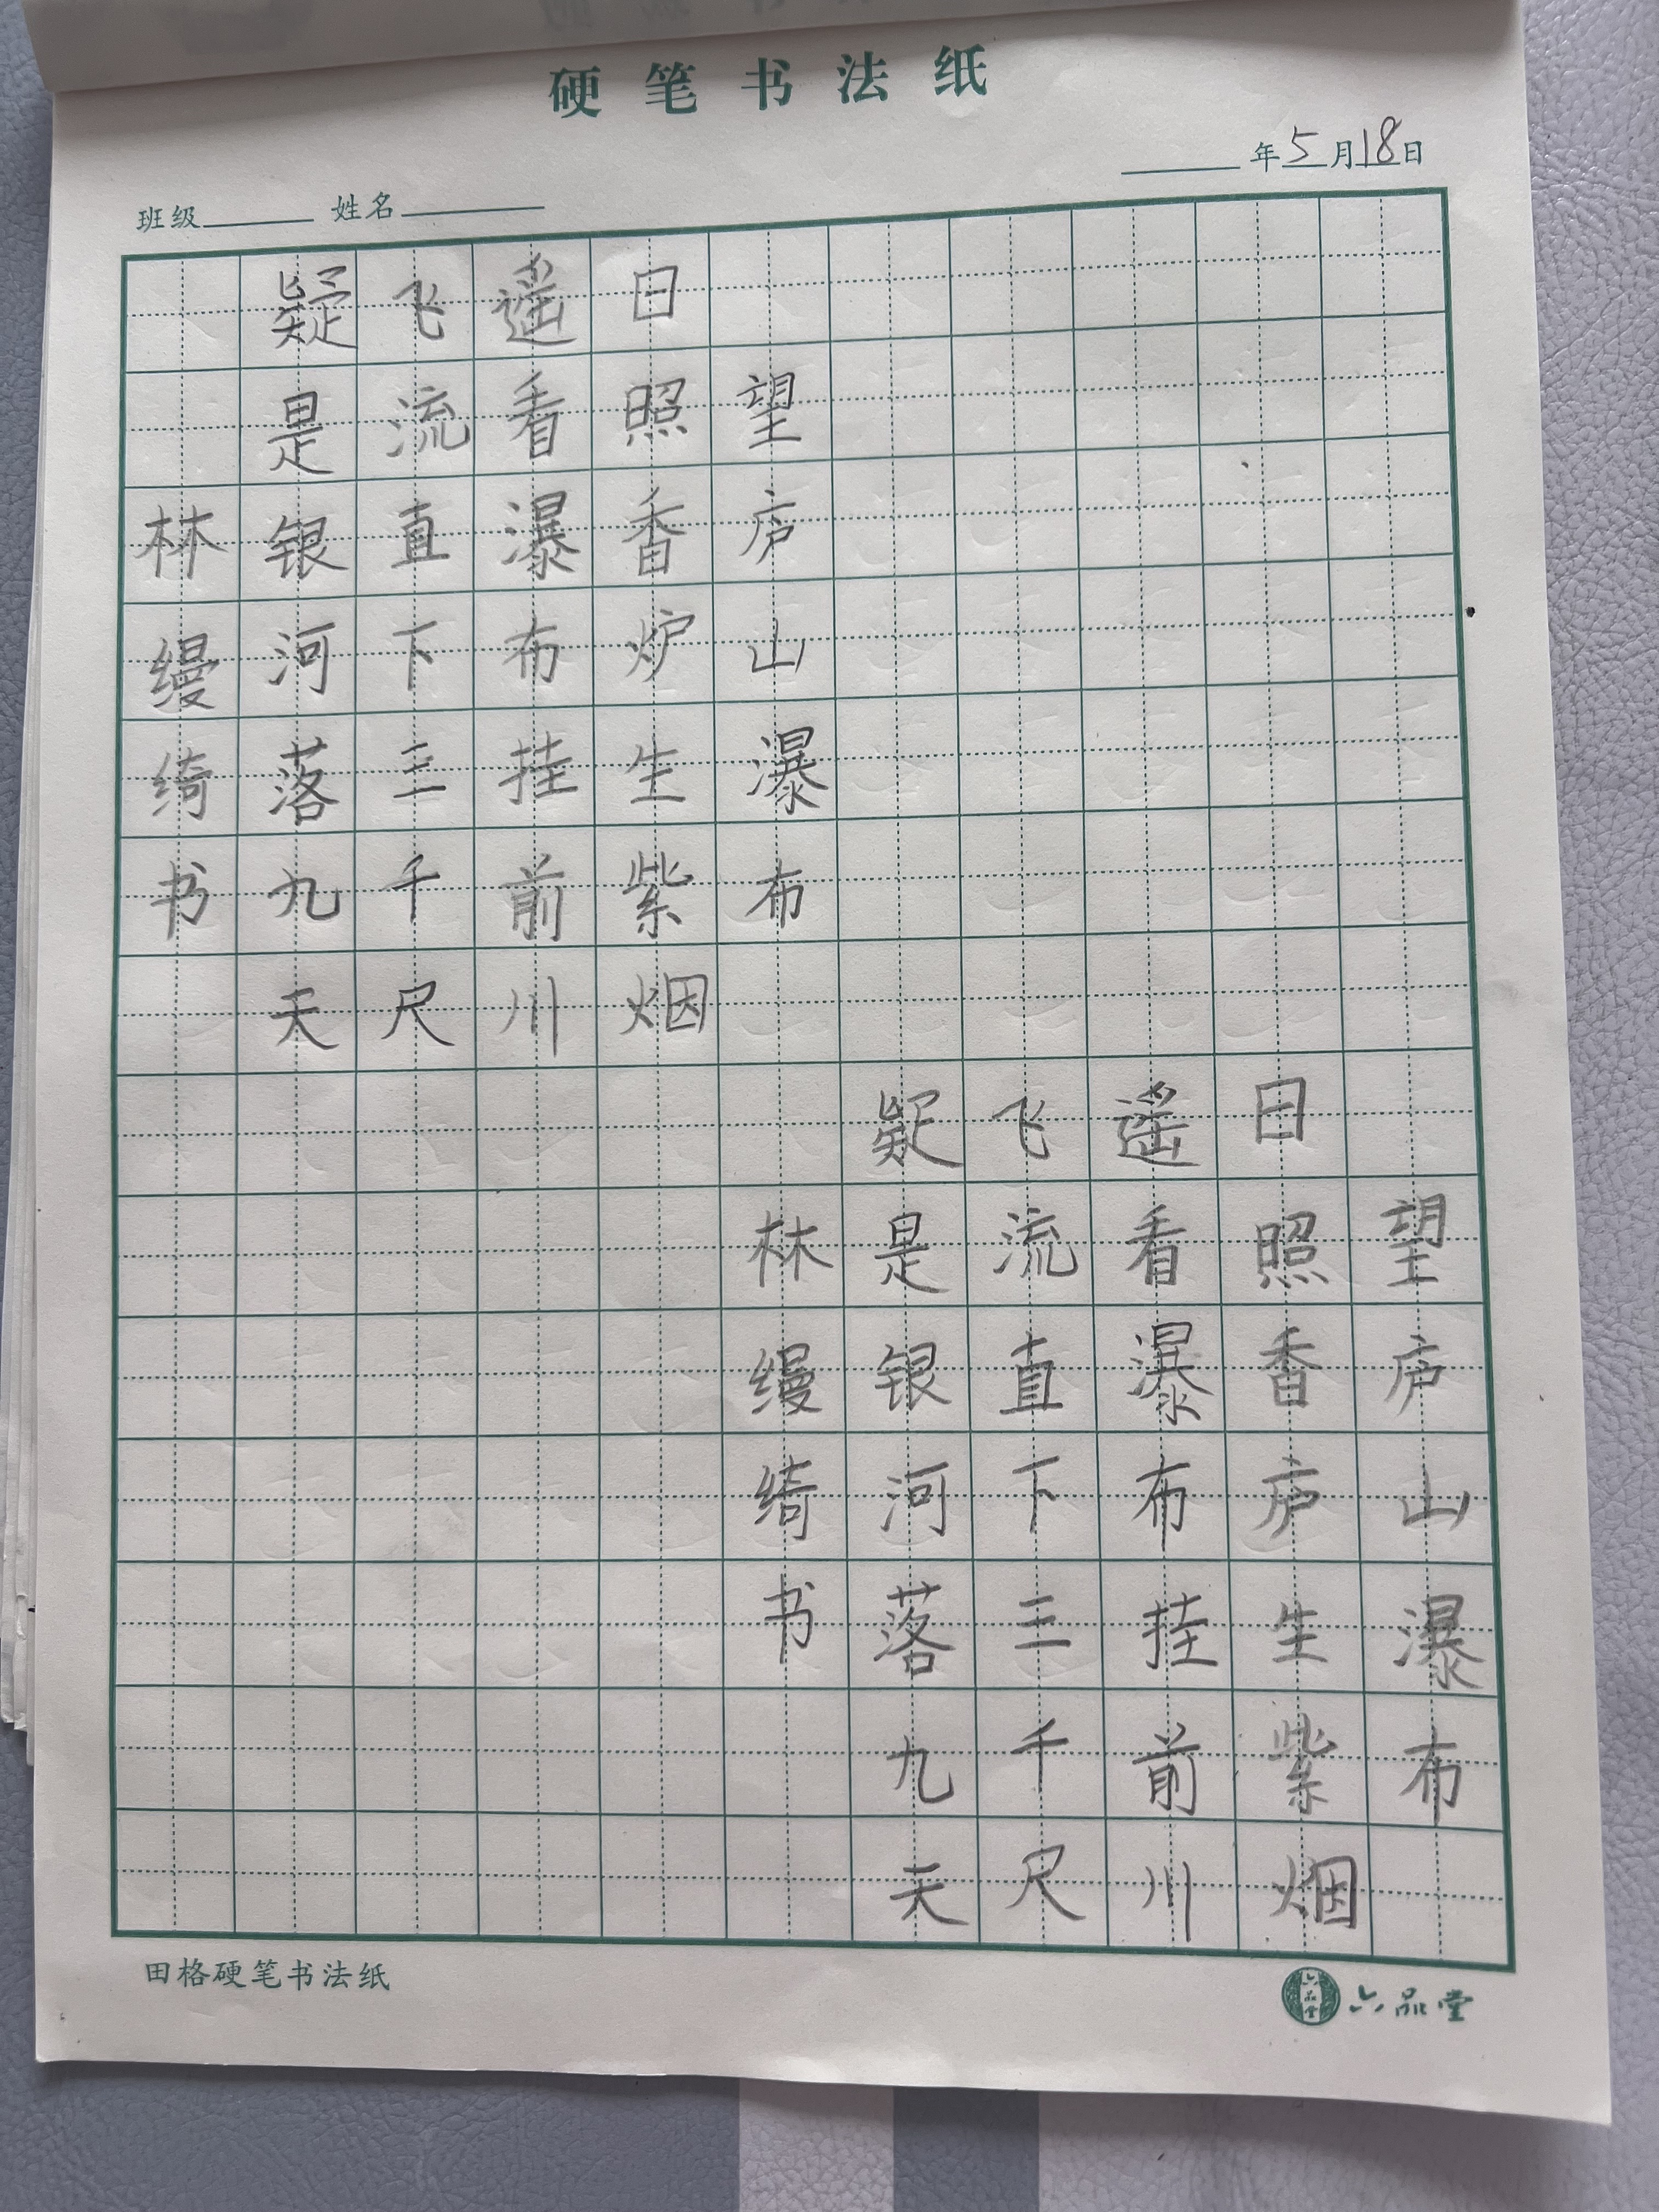 硬笔书法纸
年5月18日
班级 姓名
望庐山瀑布
日照香炉生紫烟
遥看瀑布挂前川
飞流直下三千尺
疑是银河落九天
林缦绮书
望庐山瀑布
日照香庐生紫烟
遥看瀑布挂前川
飞流直下三千尺
疑是银河落九天
林缦绮书
田格硬笔书法纸
六品堂
六品堂